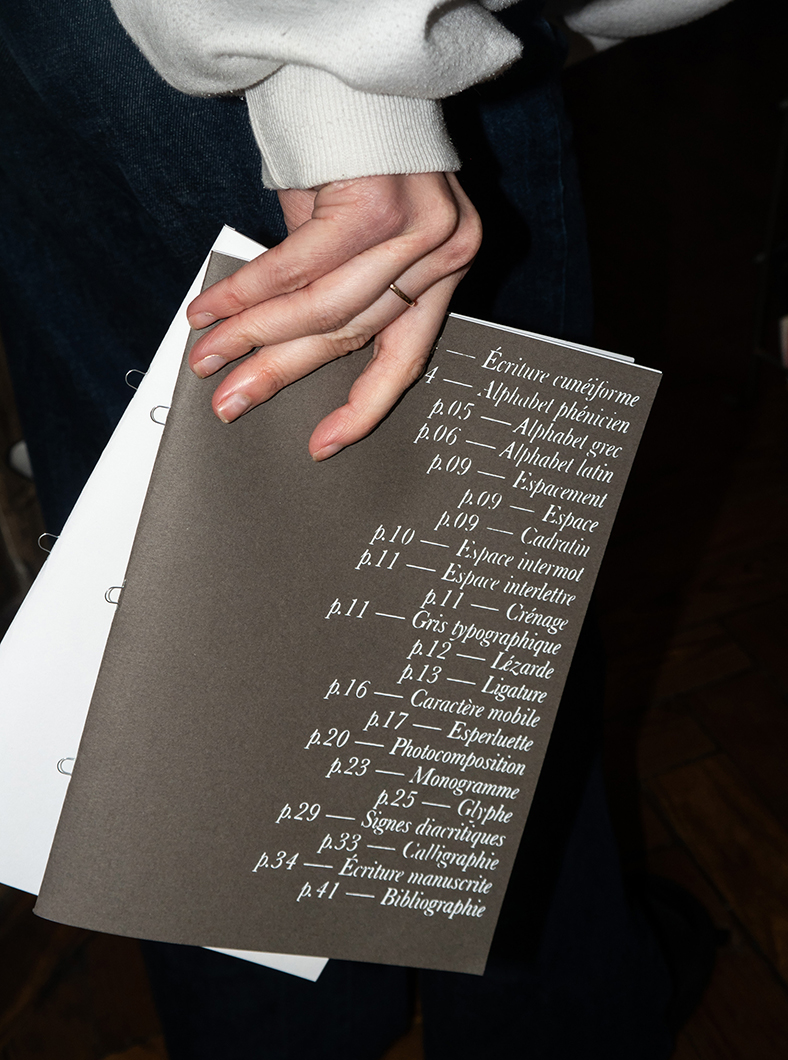 — Écriture cunéiforme
4 — Alphabet phénicien
p.05 — Alphabet grec
p.06 — Alphabet latin
p.09 — Espacement
p.09 — Espace
p.09 — Cadratin
p.10 — Espace intermot
p.11 — Espace interlettre
p.11 — Crénage
p.11 — Gris typographique
p.12 — Lézarde
p.13 — Ligature
p.16 — Caractère mobile
p.17 — Esperluette
p.20 — Photocomposition
p.23 — Monogramme
p.25 — Glyphe
p.29 — Signes diacritiques
p.33 — Calligraphie
p.34 — Écriture manuscrite
p.41 — Bibliographie